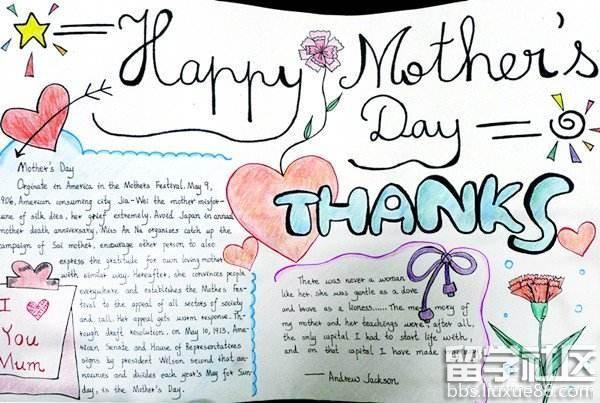 Happy Mother's
Day
THANKS
Mother's Day
Orginate in America in the Mothers Festival. May 9,
906, American consuming city Jia-Wei the mother misfor-
tune of silk dies, her grief extremely. Avoid Japan in annual
mother death anniversary, Miss An Na organises catch up the
campaign of Sai mother, encourage other person to also
express the gratitude for own loving mother
with similar way. Hereafter, she convinces people
everywhere and establishes the Mothes Fes-
tival to the appeal of all sectors of society
and call. Her appeal gets worm response. Th-
rough draft resolution. on May 10, 1913, Ame-
rican Senate and House of Representatives
signs by president Welson second that an-
nounces and divides each year's May for Sun-
day, is the Mother's Day.
I
You
Mum
There was never a woman
like her. she was gentle as a dove
and brave as a lioness...... The memory of
my mother and her teachings were, after all,
the only capital I had to start life with,
and on that capital I have made my
—— Andrew Jackson
留学社区
bbs.liuxue86.com